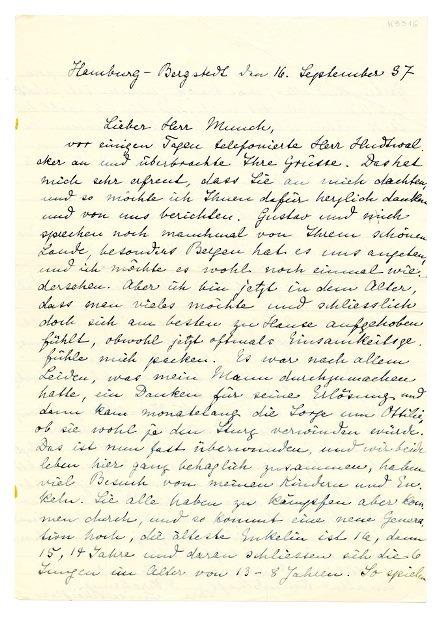 Hamburg – Bergstedt den 16. September 37
Lieber Herr Munch,
vor einigen Tagen telefonierte Herr Hudtwal
cker an und überbrachte Ihre Grüsse. Das hat
mich sehr erfreut, dass Sie an mich dachten,
und so möchte ich Ihnen dafür herzlich danken
und von uns berichten. Gustav und mich
sprechen noch manchmal von Ihrem schönen
Lande, besonders Bergen hat es uns angetan,
und ich möchte es wohl noch einmal wie-
dersehen. Aber ich bin jetzt in dem Alter,
dass man vieles möchte und schliesslich
doch sich am besten zu Hause aufgehoben
fühlt, obwohl jetzt oftmals Einsamkeitsge-
fühle mich packen. Es war nach allem
Leiden, was mein Mann durchzumachen
hatte, ein Danken für seine Erlösung und
dann kam monatelang die Sorge um Ottilie,
ob sie wohl je den Sturz verwinden würde.
Das ist nun fast überwunden, und wir beide
leben hier ganz behaglich zusammen, haben
viel Besuch von meinen Kindern und En-
keln. Sie alle haben zu kämpfen aber kom-
men durch, und so kommt eine neue Genera
tion hoch, die älteste Enkelin ist 16, dann
15, 14 Jahre und daran schliessen sich die 6
Jungen im Alter von 13 – 8 Jahren. So spielen